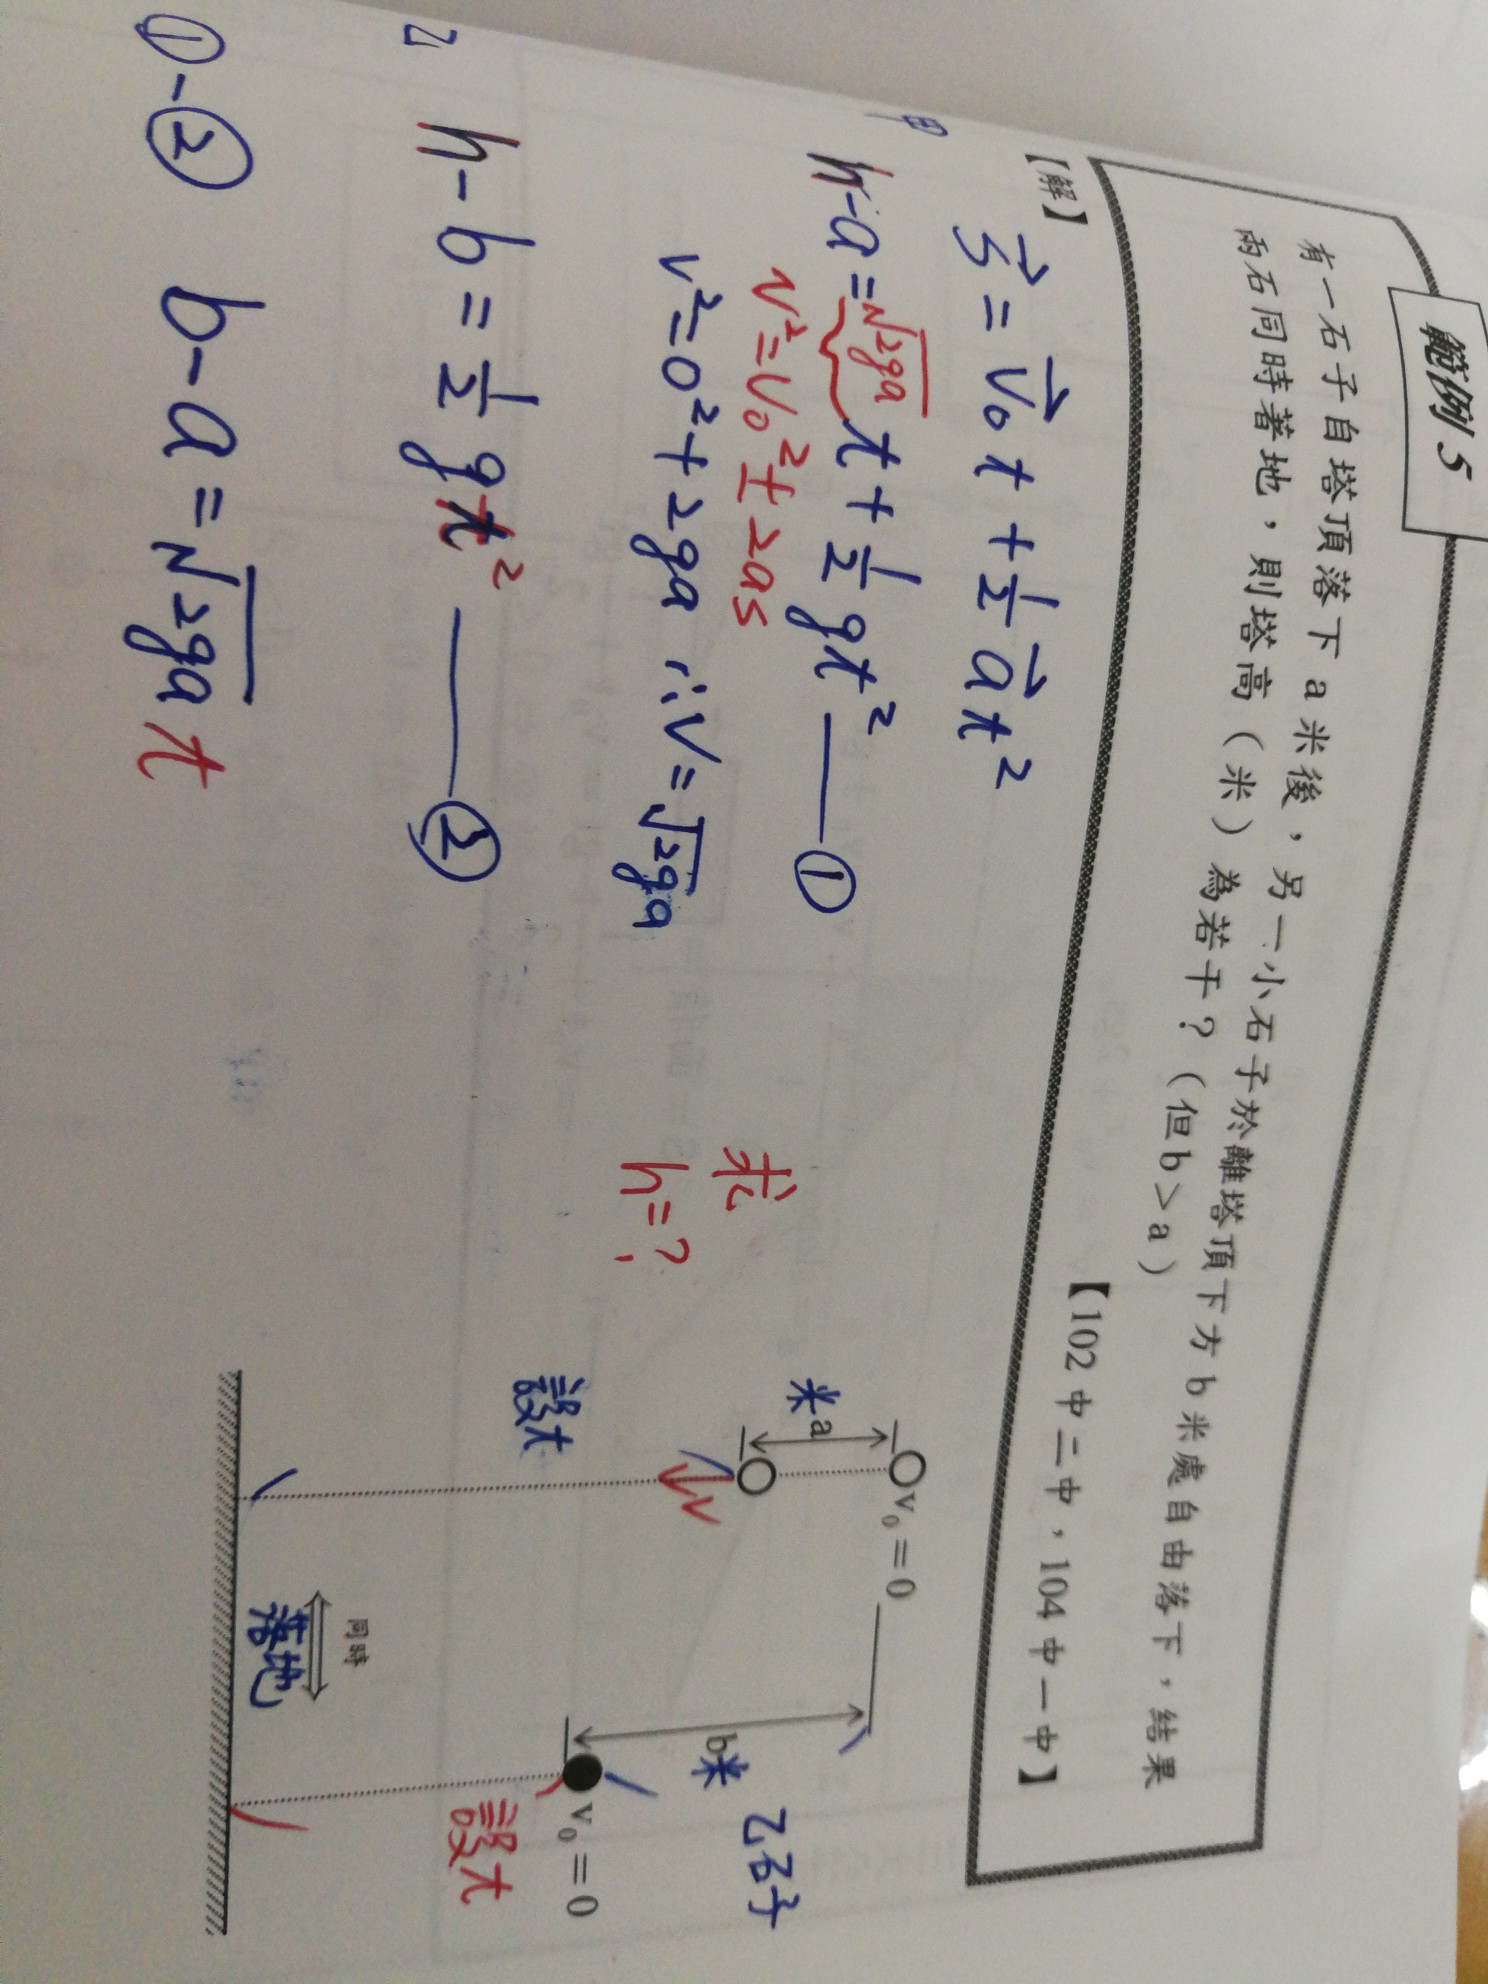 範例 5
有一石子自塔頂落下 a 米後，另一小石子於離塔頂下方 b 米處自由落下，結果
兩石同時著地，則塔高（米）為若干？（但 b > a）
【102 中二中，104 中一中】
【解】
S⃗ = V⃗₀t + ½a⃗t²
甲
h-a = √2ga t + ½gt² —— ①
v² = v₀² ± 2as
v² = 0² + 2ga ∴ V = √2ga
乙
h - b = ½gt² —— ②
① - ② b - a = √2ga t
求
h = ?
v₀ = 0
a
米
V
設t
b米
乙石子
v₀ = 0
設t
同時
落地